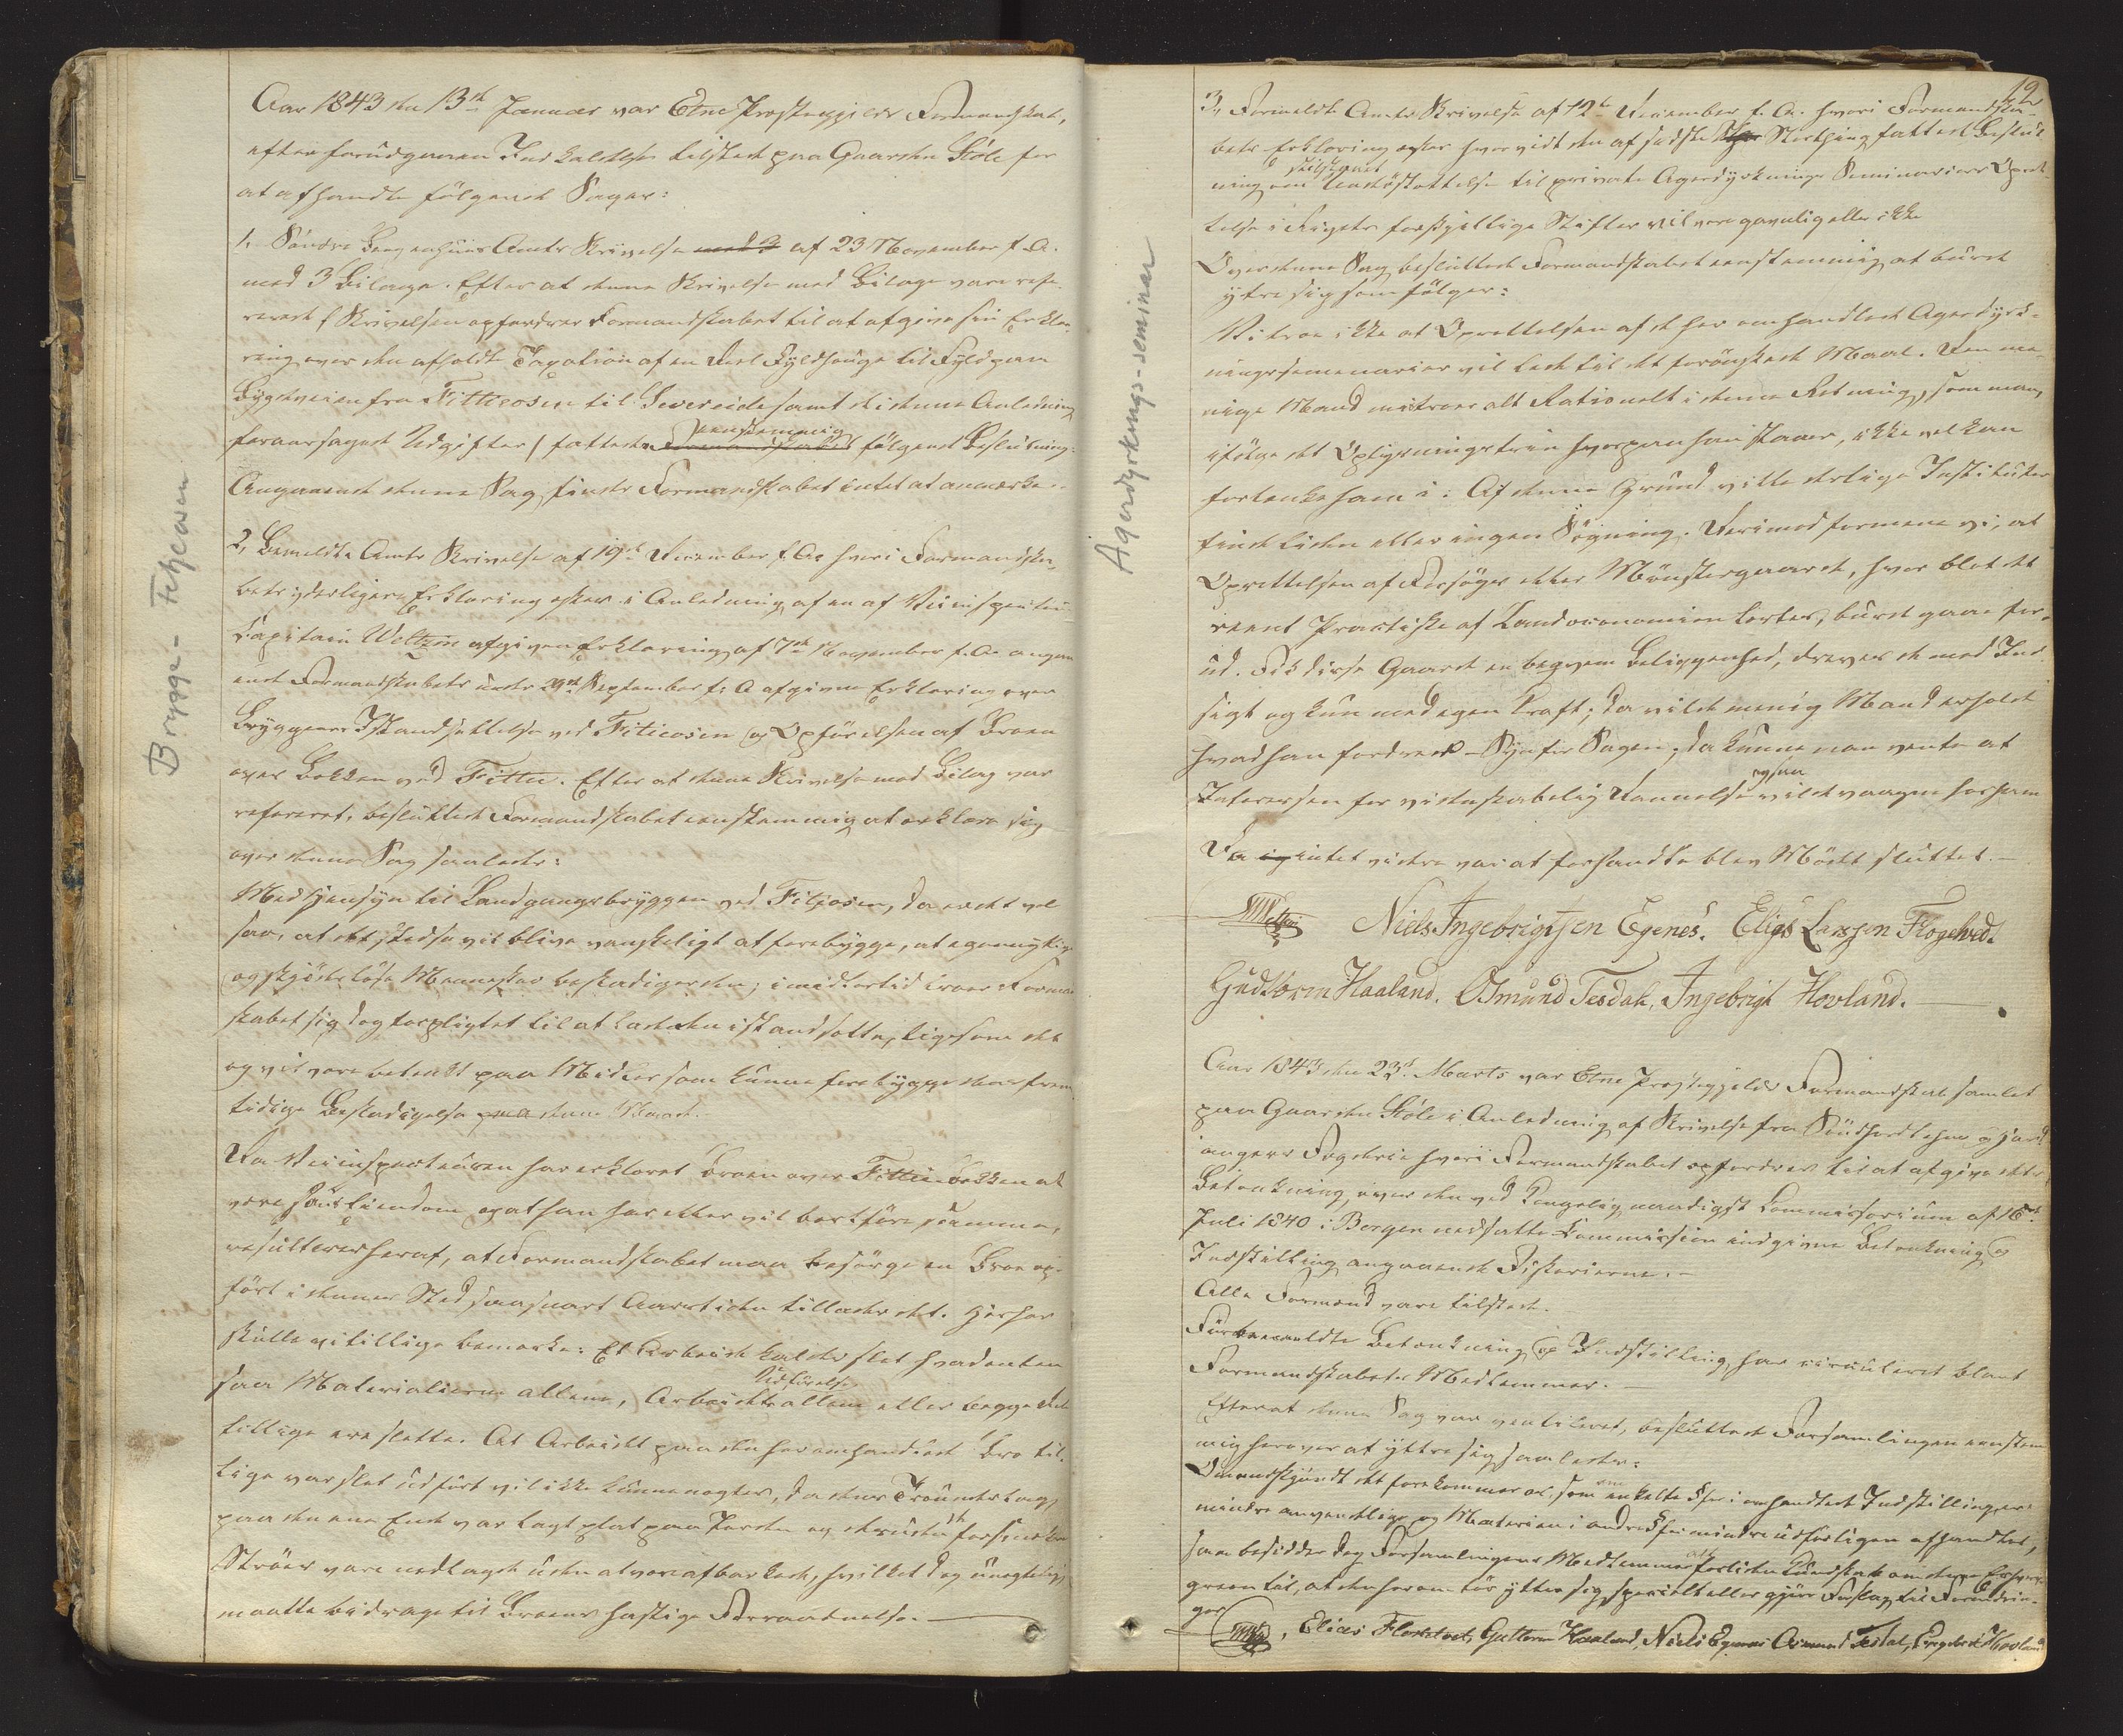 Aar 1843 den 13de Januar var Etne Præstegjelds Formandskab,
efter forudgaaen Indkaldelse tilstede paa Gaarden Støle for
at afhandle følgende Sager:
1, Søndre Bergenhuus Amts Skrivelse med 3 af 23 November f. A.
med 3 Bilage. Efter at denne Skrivelse med Bilage vare refe-
reret (Skrivelsen opfordrer Formandskabet til at afgive sin Erklæ-
ring over den afholdte Taxation af en Deel Fyldhouge til Fyld paa
Bygdeveien fra Fitticosen til Severeide samt de i denne Anledning
foraarsagede Udgifter) fattede Formandskabet eenstemmig følgende Beslutning:
Angaaende denne Sag finder Formandskabet intet at anmærke.
2, Bemeldte Amts Skrivelse af 19de December f. A. hvori Formandska-
bets yderligere Erklæring æskes i Anledning af en af Veiinspecteur
Capitain Weltzin afgiven Erklæring af 7de November f. A. angaa-
ende Formandskabets under 29de September f. A. afgivne Erklæring over
Bryggens Istandsættelse ved Fiticosen og Opførelsen af Broen
over Bækken ved Fittie. Efter at denne Skrivelse med Bilag var
refereret, besluttede Formandskabet eenstemmig at erklære sig
over denne Sag saaledes:
Med Hensyn til Landgangsbryggen ved Fitjeosen, da er det vel
saa, at det stedse vil blive vanskeligt at forebygge, at egennyttige
og skjødesløse Mennesker beskadiger den; imidlertid troer Formand-
skabet sig dog forpligtet til at lade den istandsætte, ligesom det
og vil være betænkt paa Midler som kunne forebygge dens frem-
tidige Beskadigelse paa denne Maade.
Da Veiinspecteuren har erklæret Broen over Fittiebækken at
være sin Eiendom og at han har eller vil bortføre samme,
resulterer heraf, at Formandskabet maa besørge en Broe op-
ført i dennes Sted saasnart Aarstiden tillader det. Herhos
skulle vi tillige bemærke: Et Arbeide kaldes slet hvad enten
saa Materialierne allene, Arbeidets Udførelse allene eller begge Dele
tillige ere slette. At Arbeidet paa den her omhandlede Bro til-
lige var slet udført vil ikke kunne nægtes, da dens Trounderlag
paa den ene Ende var lagt plat paa Jorden og desuden de forskjellige
Ströer vare nedlagde uden at være afbarkede, hvilket dog unægtelig
maatte bidrage til Broens hastige Forraadnelse.
Brygge - Fitjeosen
19
3, Formeldte Amts Skrivelse af 12te December f. A. hvori Formandska-
bets Erklæring æskes hvorvidt den af sidste Storthing fattede Beslut-
ning om tilstaaet Understøttelse til private Agerdyrknings Seminariers Opret-
telse i Rigets forskjellige Stifter vil være gavnlig eller ikke
Over denne Sag besluttede Formandskabet eenstemmig at burde
yttre sig som følger:
Vi troe ikke at Oprettelsen af de her omhandlede Agerdyrk-
ningsseminarier vil lede til det forønskede Maal. Den me-
nige Mand mistroer alt Rationelt i denne Retning, som man,
ifølge det Oplysningstrin hvorpaa han staaer, ikke vel kan
fortænke ham i: Af denne Grund ville deslige Instituter
finde liden eller ingen Søgning. Derimod formene vi, at
Oprettelsen af Forsøgs eller Mønstergaarde, hvor blot det
reent Practiske af Landoeconomien læres, burde gaae for-
ud. Fik disse Gaarde en beqvem Beliggenhed, dreves de med Ind-
sigt og kun med egen Kraft; da vilde menig Mand erholde
hvad han fordrer - Syn for Sagen; da kunne man vente at
Interessen for videnskabelig Dannelse ogsaa vilde vaagne hos ham
Da intet videre var at forhandle blev Mødet sluttet.
Niels Ingebrigtsen Egenes. Elias Larssen Flogehved.
Gudtorm Haaland. Osmund Tesdal, Ingebrigt Hovland.
Agerdyrknings-seminar
Aar 1843 den 23de Marts var Etne Præstegjelds Formandskab samlet
paa Gaarden Støle i Anledning af Skrivelse fra Søndhordlehns og Hard-
angers Fogderie hvori Formandskabet opfordres til at afgive dets
Betænkning over den ved Kongelig naadigst Commissorium af 16de
Juli 1840 i Bergen nedsatte Commission indgivne Betænkning og
Indstilling angaaende Fiskerierne.
Alle Formænd vare tilstede.
Forbemeldte Betænkning og Indstilling har circuleret blant
Formandskabets Medlemmer.
Efterat denne Sag var ventileret, besluttede Forsamlingen eenstem-
mig herover at yttre sig saaledes:
Omendskjøndt det forekommer os, som om enkelte §fer i omhandlede Indstilling er
mindre anvendelige og Materien i andre §fer mindre udførligen afhandlet,
saa besidder dog Forsamlingens Medlemmer altfor liden Kundskab om denne Erhvervs-
green til, at den herom tør yttre sig specielt eller gjøre Forslag til Forandrin-
ger
Elias Flokehved, Guttorm Haaland, Niels Egenæs Osmund Tesdal, Engebrigt Hovland